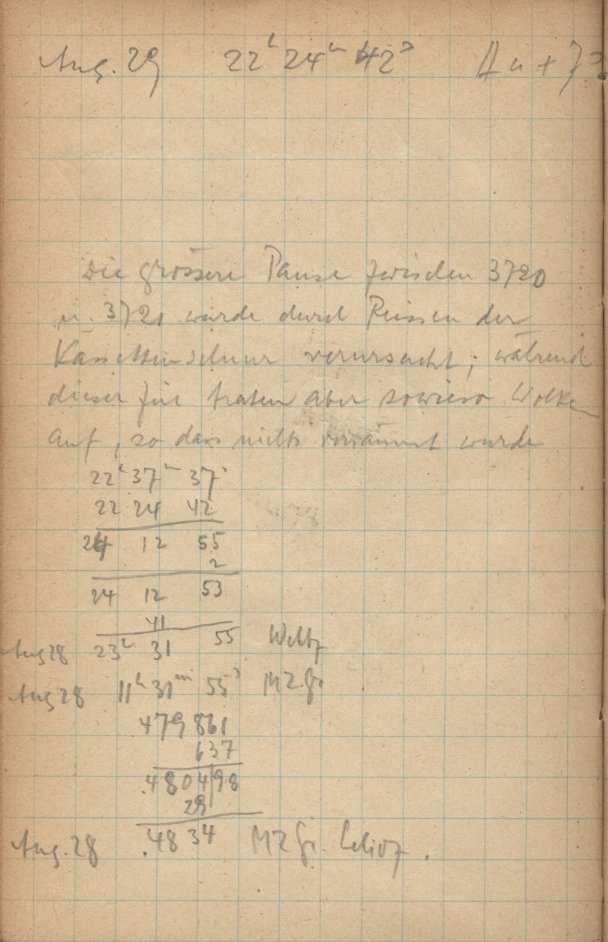 Aug. 29 22h 24m 42s U + 7s
Die grössere Pause zwischen 3720
u. 3721 wurde durch Reissen der
Kassettenschnur verursacht; während
dieser Zeit traten aber sowieso Wolken
auf, so dass nichts versäumt wurde
22h 37m 37s
22 24 42
24 12 55
2
24 12 53
41
Aug 28 23h 31 55 Weltz
Aug 28 11h 31m 55s MZGr
.479861
637
.480498
29
Aug. 28 .4834 MZGr. helioz.